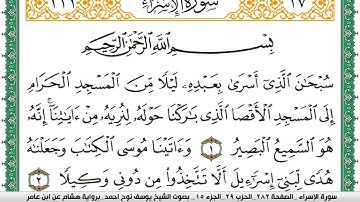 ١١١ سُورَةُ الإِسْرَاءِ ١٧
بِسْمِ اللَّهِ الرَّحْمَٰنِ الرَّحِيمِ
سُبْحَٰنَ الَّذِىٓ أَسْرَىٰ بِعَبْدِهِۦ لَيْلًا مِّنَ الْمَسْجِدِ الْحَرَامِ
إِلَى الْمَسْجِدِ الْأَقْصَا الَّذِى بَٰرَكْنَا حَوْلَهُۥ لِنُرِيَهُۥ مِنْ ءَايَٰتِنَآ إِنَّهُۥ
هُوَ السَّمِيعُ الْبَصِيرُ ١ وَءَاتَيْنَا مُوسَى الْكِتَٰبَ وَجَعَلْنَٰهُ
هُدًى لِّبَنِىٓ إِسْرَٰٓءِيلَ أَلَّا تَتَّخِذُوا۟ مِن دُونِى وَكِيلًا ٢
سورة الإسراء _ الصفحة ٢٨٢ _ الحزب ٢٩ _ الجزء ١٥ _ بصوت الشيخ يوسف نوح احمد _ برواية هشام عن ابن عامر